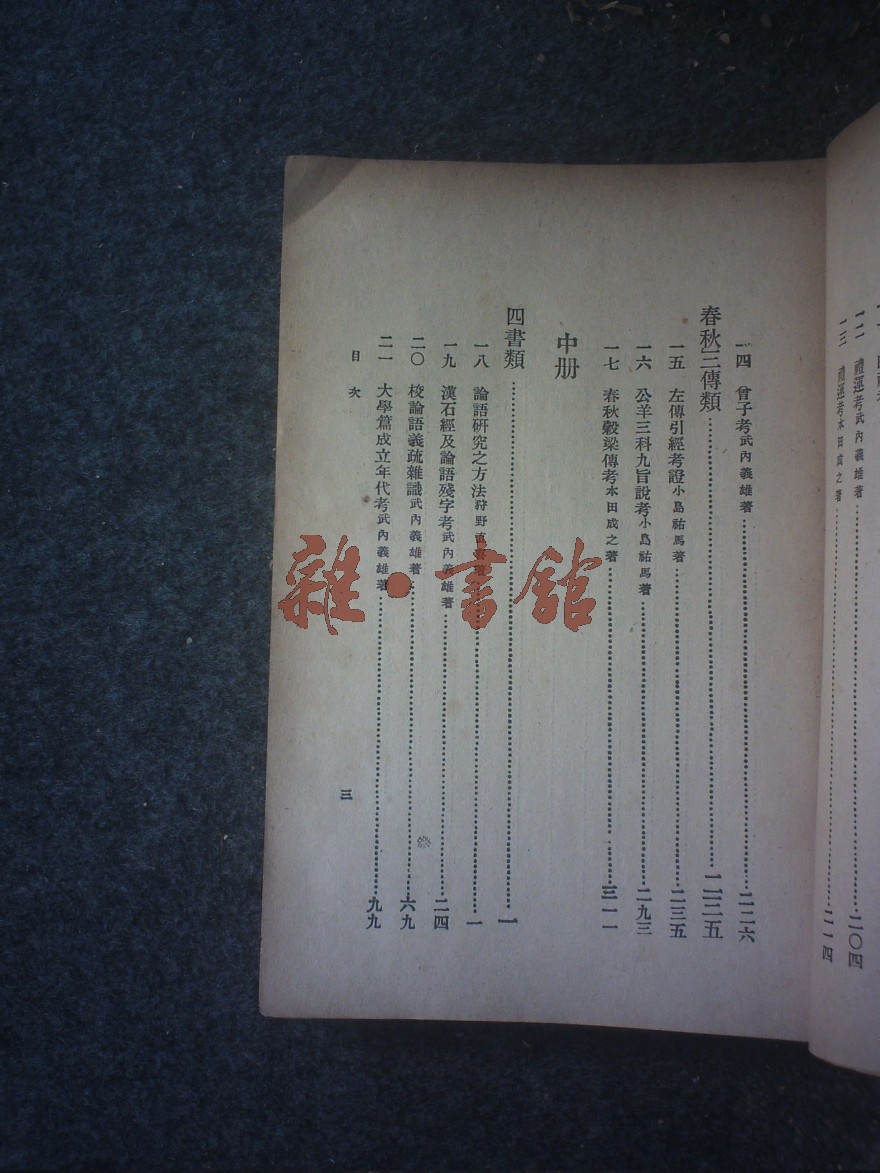 一二 禮運考武內義雄著……二〇四
一三 禮運考本田成之著……二一四
一四 曾子考武內義雄著……二二六
春秋三傳類……二三五
一五 左傳引經考證小島祐馬著……二三五
一六 公羊三科九旨說考小島祐馬著……二九三
一七 春秋穀梁傳考本田成之著……三一一
中册
四書類……一
一八 論語研究之方法狩野直喜著……一
一九 漢石經及論語殘字考武內義雄著……二四
二〇 校論語義疏雜識武內義雄著……六九
二一 大學篇成立年代考武內義雄著……九九
目次
三
雜·書館